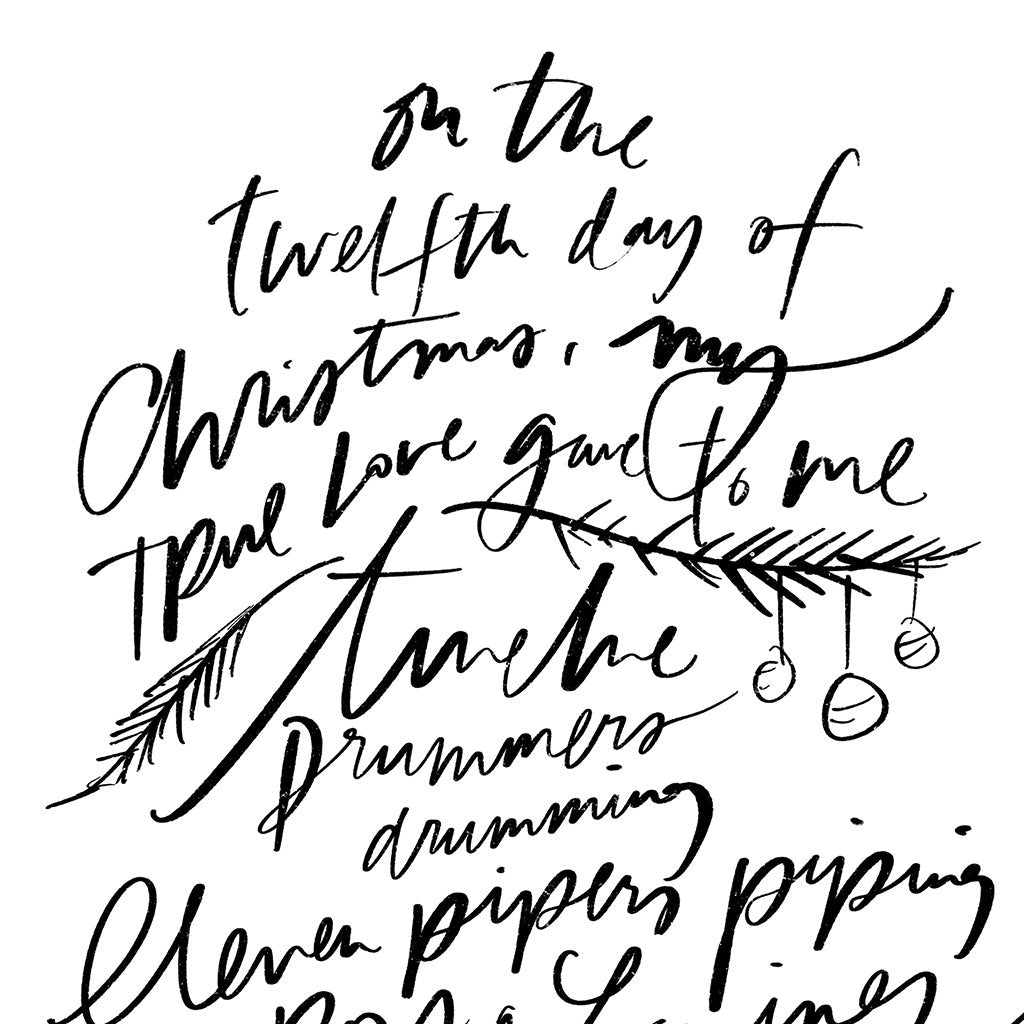 on the
twelfth day of
Christmas, my
true love gave to me
twelve
Drummers
drumming
Eleven pipers piping